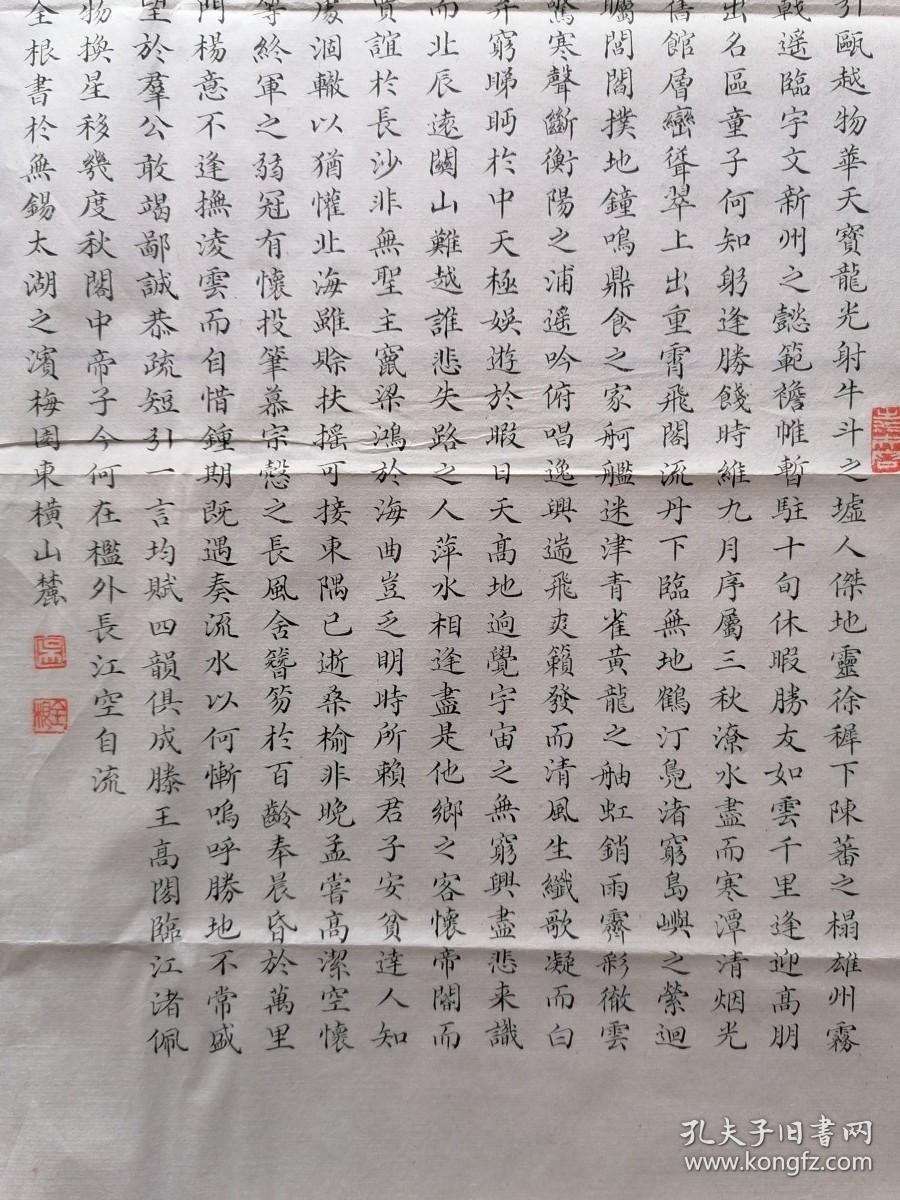 引甌越物華天寶龍光射牛斗之墟人傑地靈徐穉下陳蕃之榻雄州霧
戟遥臨宇文新州之懿範襜帷暫駐十旬休暇勝友如雲千里逢迎高朋
出名區童子何知躬逢勝餞時維九月序屬三秋潦水盡而寒潭清烟光
舊館層巒聳翠上出重霄飛閣流丹下臨無地鶴汀鳧渚窮島嶼之縈迴
矚閭閻撲地鐘鳴鼎食之家舸艦迷津青雀黃龍之舳虹銷雨霽彩徹雲
驚寒聲斷衡陽之浦遥吟俯唱逸興遄飛爽籟發而清風生纖歌凝而白
弁窮睇眄於中天極娱遊於暇日天高地迥覺宇宙之無窮興盡悲来識
而北辰遠關山難越誰悲失路之人萍水相逢盡是他鄉之客懷帝閽而
賈誼於長沙非無聖主竄梁鴻於海曲豈乏明時所賴君子安貧達人知
處涸轍以猶懽北海雖賒扶摇可接東隅已逝桑榆非晚孟嘗高潔空懷
等終軍之弱冠有懷投筆慕宗慤之長風舍簪笏於百齡奉晨昏於萬里
門楊意不逢撫淩雲而自惜鍾期既遇奏流水以何慚嗚呼勝地不常盛
望於羣公敢竭鄙誠恭疏短引一言均賦四韻俱成滕王高閣臨江渚佩
物換星移幾度秋閣中帝子今何在檻外長江空自流
全根書於無錫太湖之濱梅園東橫山麓
全根
孔夫子旧書网
www.kongfz.com